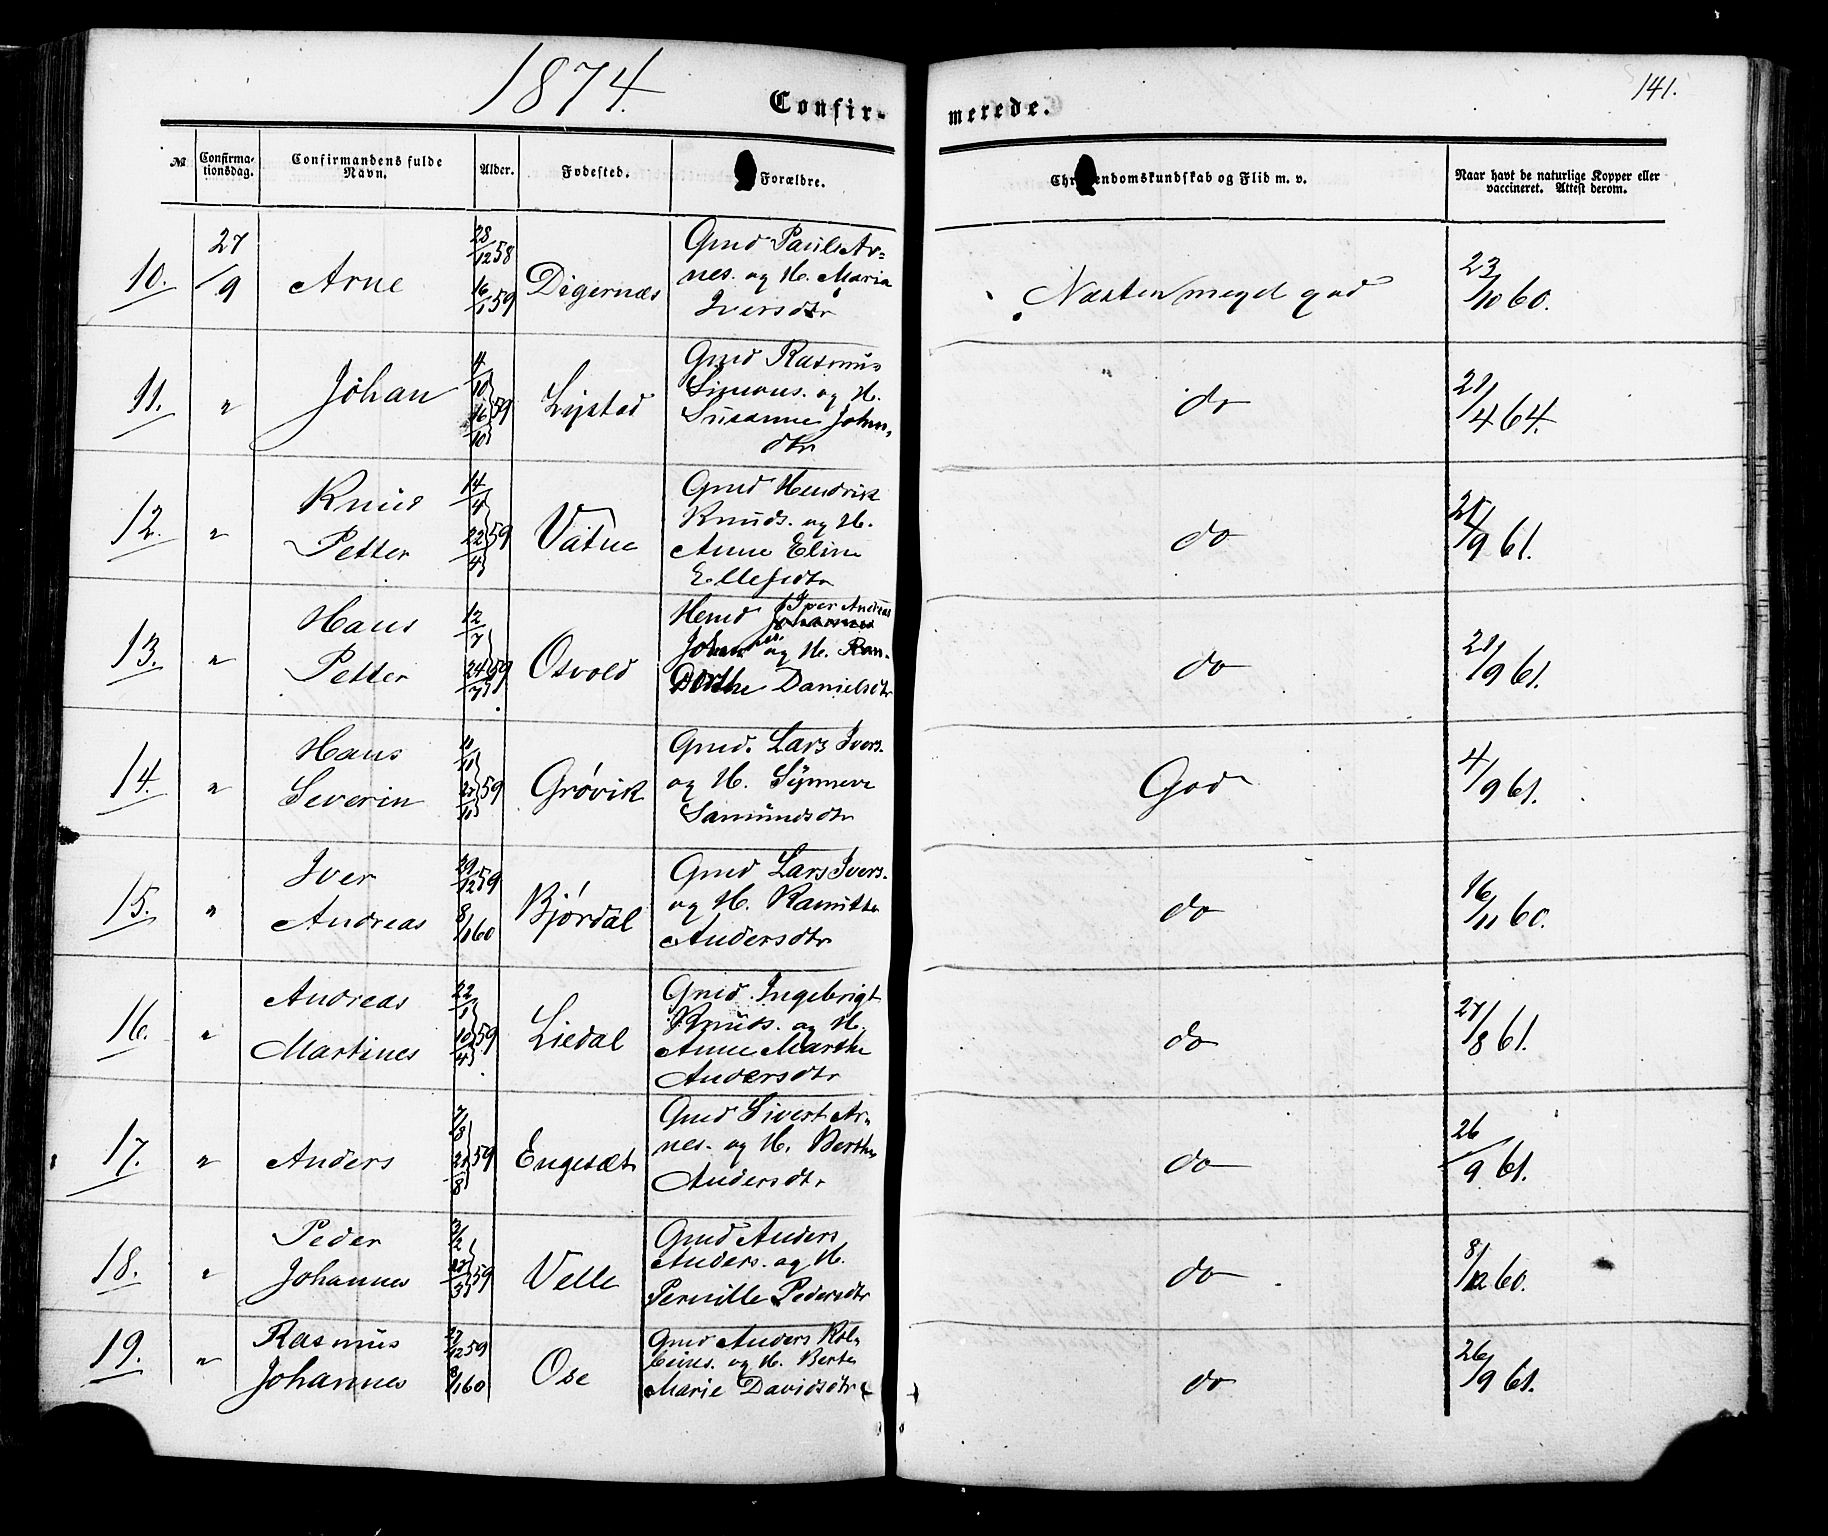 1874.
141.
Confir-
merede.
№
Confirma-
tionsdag.
Confirmandens fulde
Navn.
Alder.
Fødested.
Forældre.
Christendomskundskab og Flid m. v.
Naar havt de naturlige Kopper eller
vaccineret. Attest derom.
10. 27/9 Arne 28/12 58 16/1 59 Digernæs
Gmd Pauls Ar=
nes. og H. Maria
Iversdtr
Næsten meget god 23/10 60.
11. " Johan 4/10 16/10 59 Lystad
Gmd Rasmus
Simons. og H.
Susanne Johns
dtr
do 21/4 64.
12. " Knud
Petter 14/4 22/4 59 Vatne
Gmd Hendrik
Knuds. og H.
Anne Eline
Ellefsdtr
do /9 61.
13. " Hans
Petter 12/7 24/7 59 Osvold
Hmd Iver Andreas
Johan og H.
Dorthe Danielsdtr
do 21/9 61.
14. " Hans
Severin /10 /10 59 Grøvik
Gmd. Lars Ivers.
og H. Synneve
Samundsdtr
God 4/9 61.
15. " Iver
Andreas 29/12 59 8/1 60 Bjørdal
Gmd Lars Ivers.
og H.
Andersdtr
do 16/11 60.
16. " Andreas
Martines 22/1 10/4 59 Liedal
Gmd Ingebrigt
Knuds. og H.
Anne Marthe
Andersdtr
do 27/8 61.
17. " Anders 7/8 21/8 59 Engesæt
Gmd Sivert Ar-
nes. og H. Berthe
Andersdtr
do 26/9 61.
18. " Peder
Johannes 3/2 /3 59 Velle
Gmd Anders
Anders. og H.
Pernille Pedersdtr
do 8/12 60.
19. " Rasmus
Johannes 27/12 59 8/1 60 Ose
Gmd Anders Kol-
beins. og H. Berte
Marie Davidsdtr
do 26/9 61.